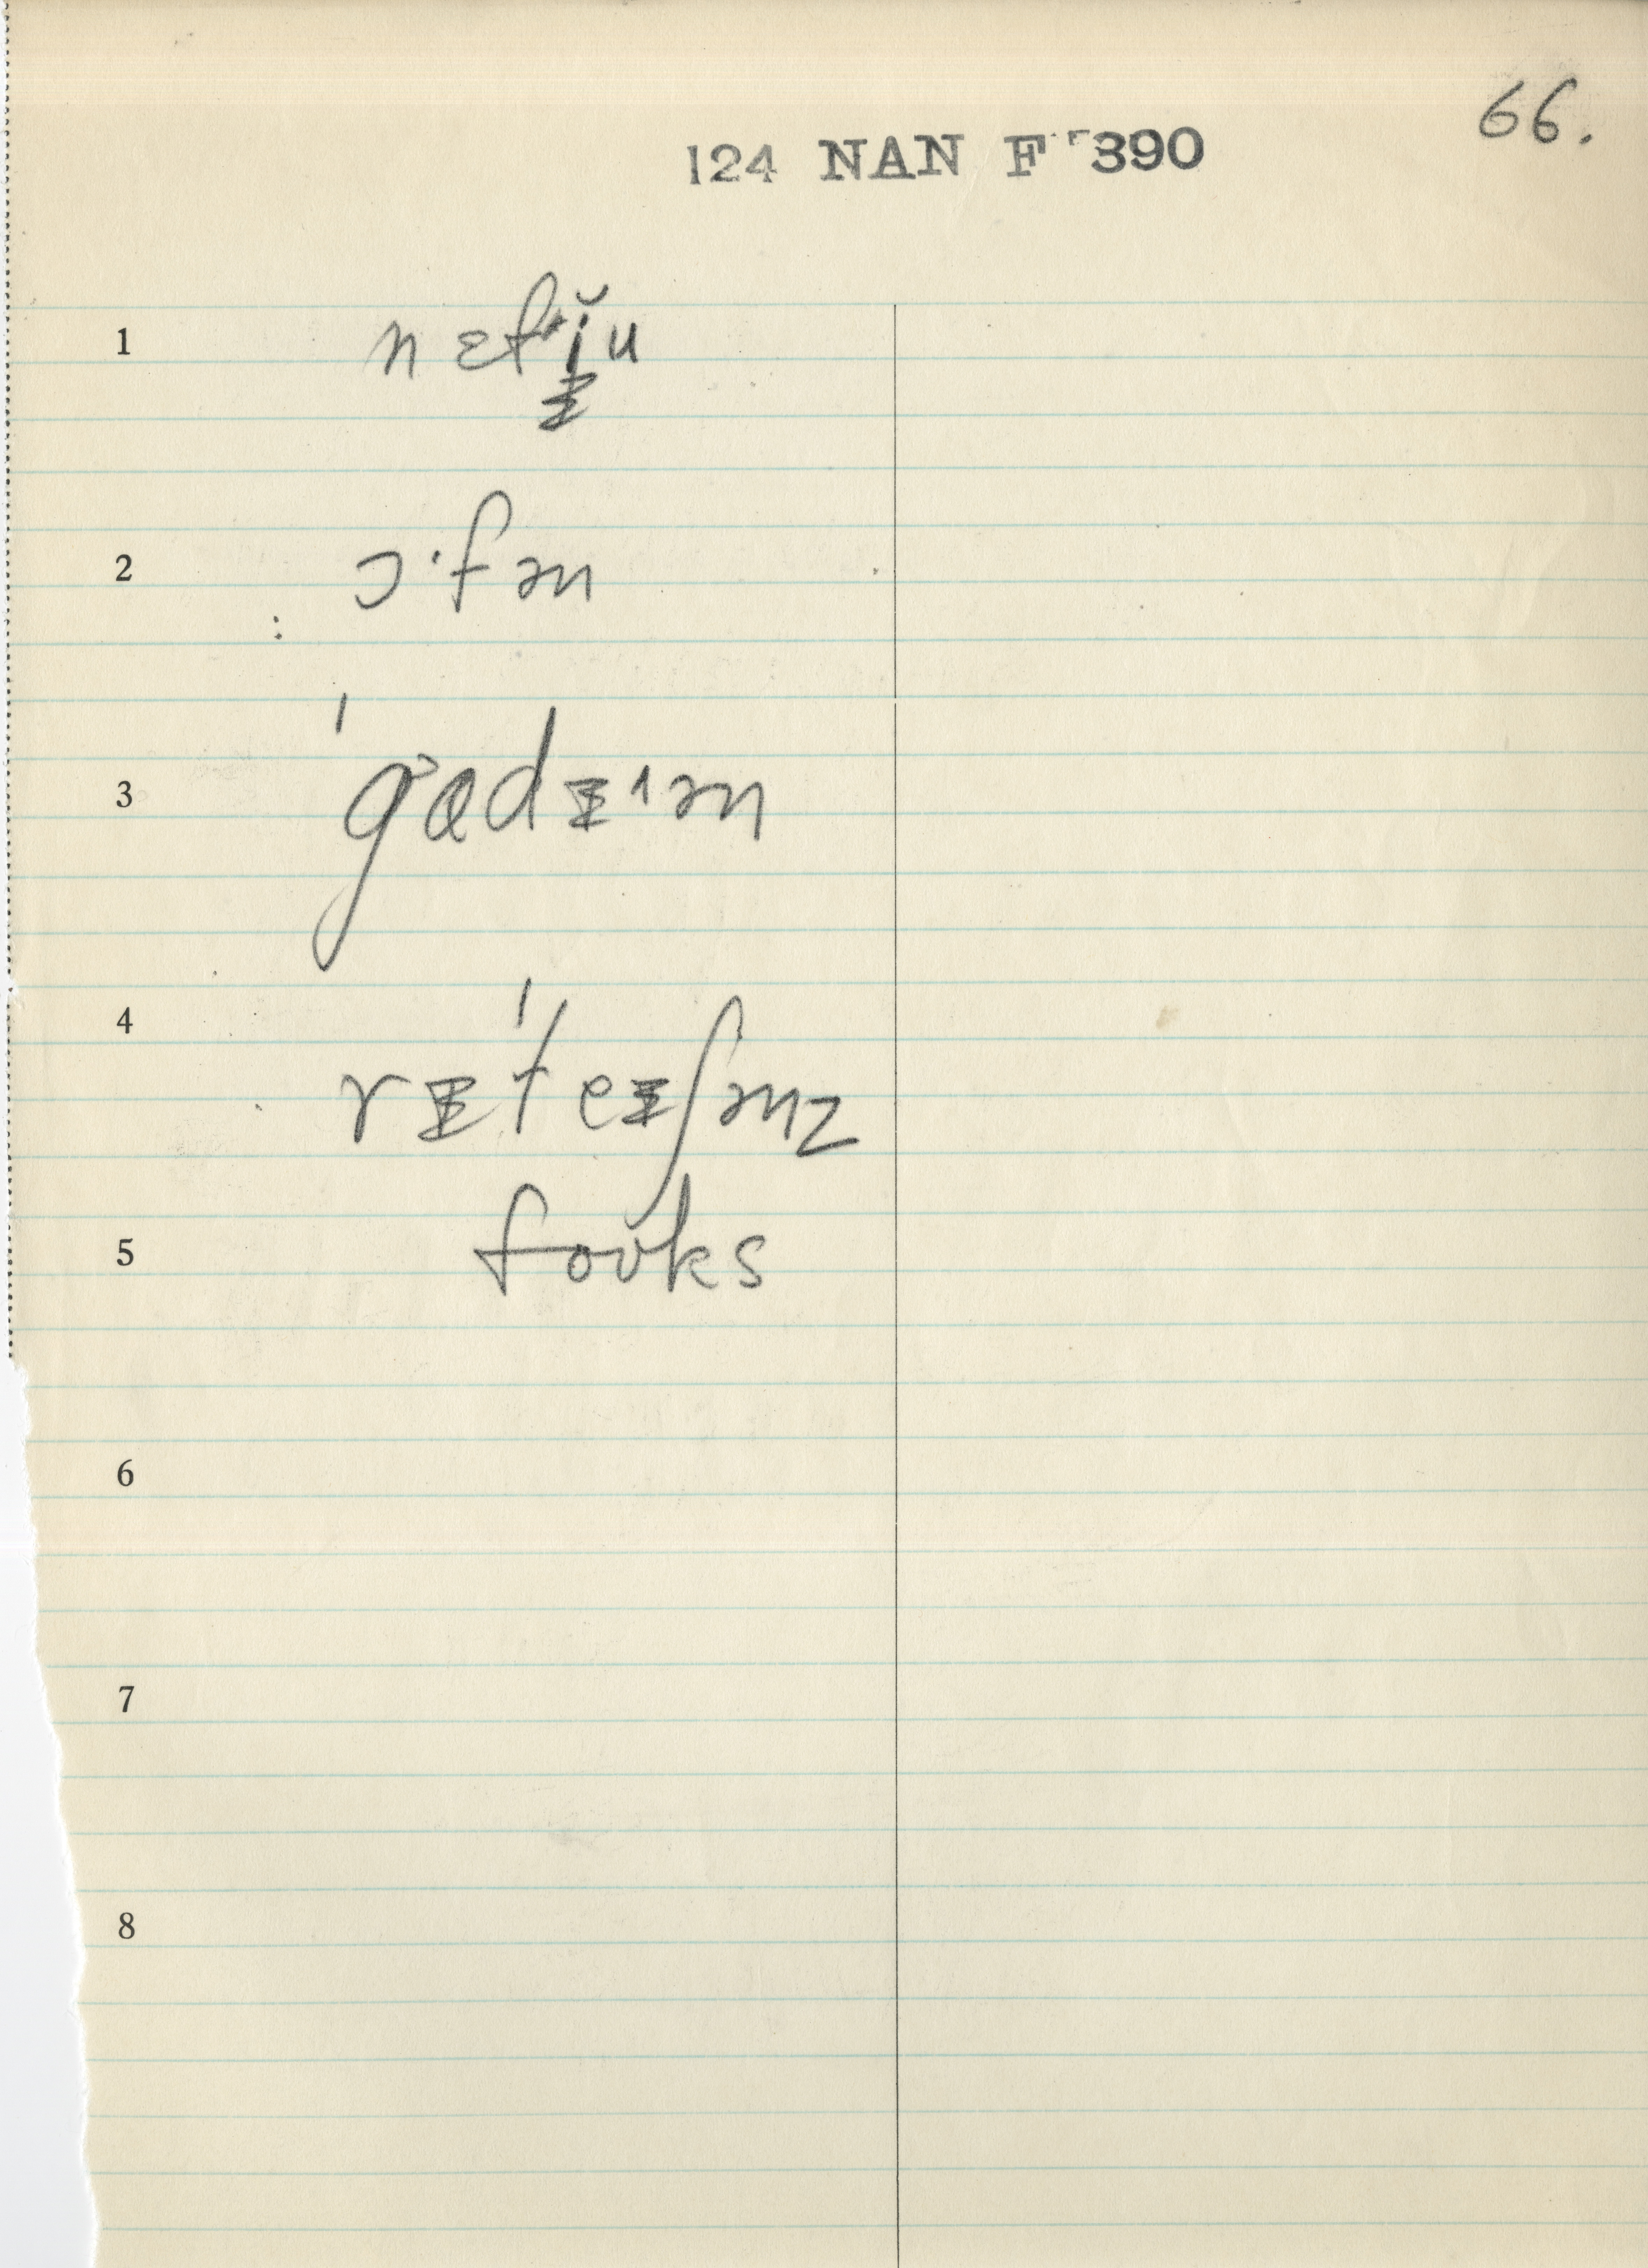 66.
124 NAN F 390
1 nɛfᵻ̆u
2 ɔ·fən
3 ˈgɑdᵻən
4 rᵻˈteᵻʃənz
5 foʊks
6
7
8